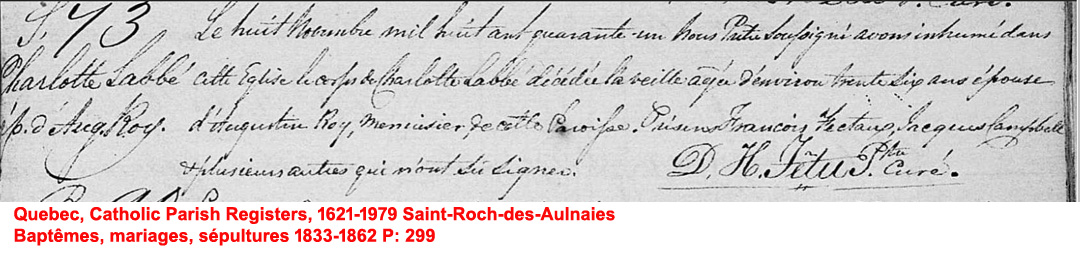 S. 73
Charlotte Labbé
ép. d'Aug. Roy.
Le huit Novembre mil huit cent quarante-un Nous Prêtre soussigné avons inhumé dans
cette Eglise le corps de Charlotte Labbée décédée la veille agée d'environ trente six ans épouse
d'Augustin Roy, Menuisier de cette Paroisse. Présens François Fectaux, Jacques Campbell
& plusieurs autres qui n'ont su signer. D. H. Têtu Ptre Curé.
Quebec, Catholic Parish Registers, 1621-1979 Saint-Roch-des-Aulnaies
Baptêmes, mariages, sépultures 1833-1862 P: 299